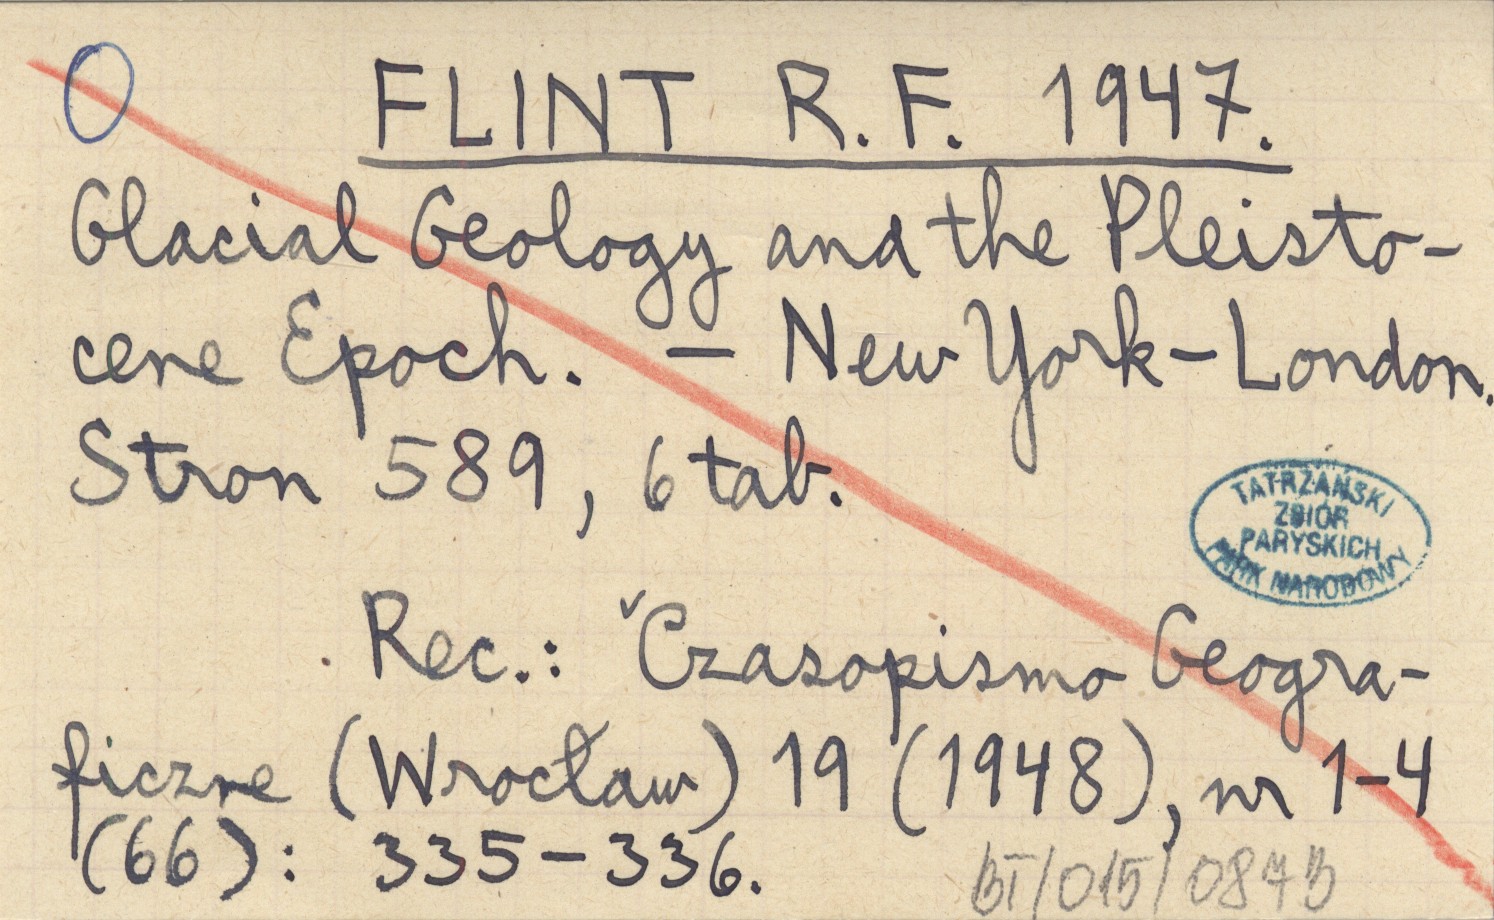 FLINT R. F. 1947.
Glacial Geology and the Pleisto-
cene Epoch. – New York – London.
Stron 589, 6 tab.
TATRZAŃSKI
ZBIÓR
PARYSKICH
PARK NARODOWY
Rec.: Czasopismo Geogra-
ficzne (Wrocław) 19 (1948), nr 1–4
(66): 335–336.
BT/015/